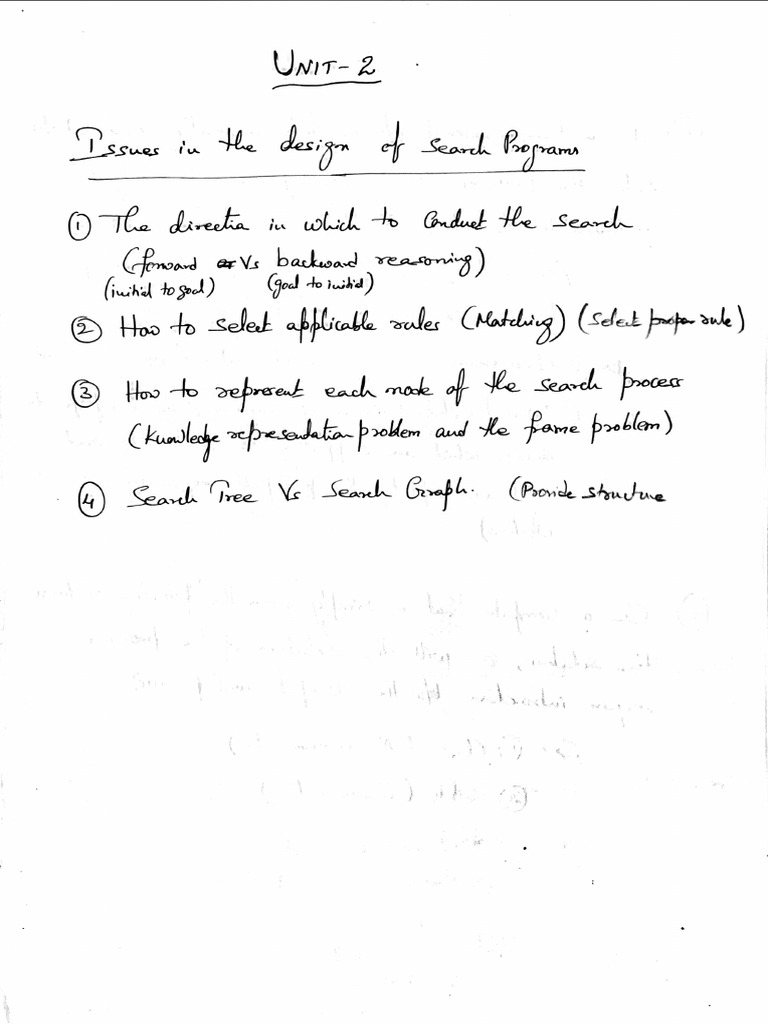 UNIT-2
Issues in the design of Search Programs
① The directia in which to Conduct the search
(forward or Vs backward reasoning)
(initial to goal) (goal to initial)
② How to select applicable rules (Matching) (select proper rule)
③ How to represent each node of the search process
(knowledge representation problem and the frame problem)
④ Search Tree Vs Search Graph. (Provide structure